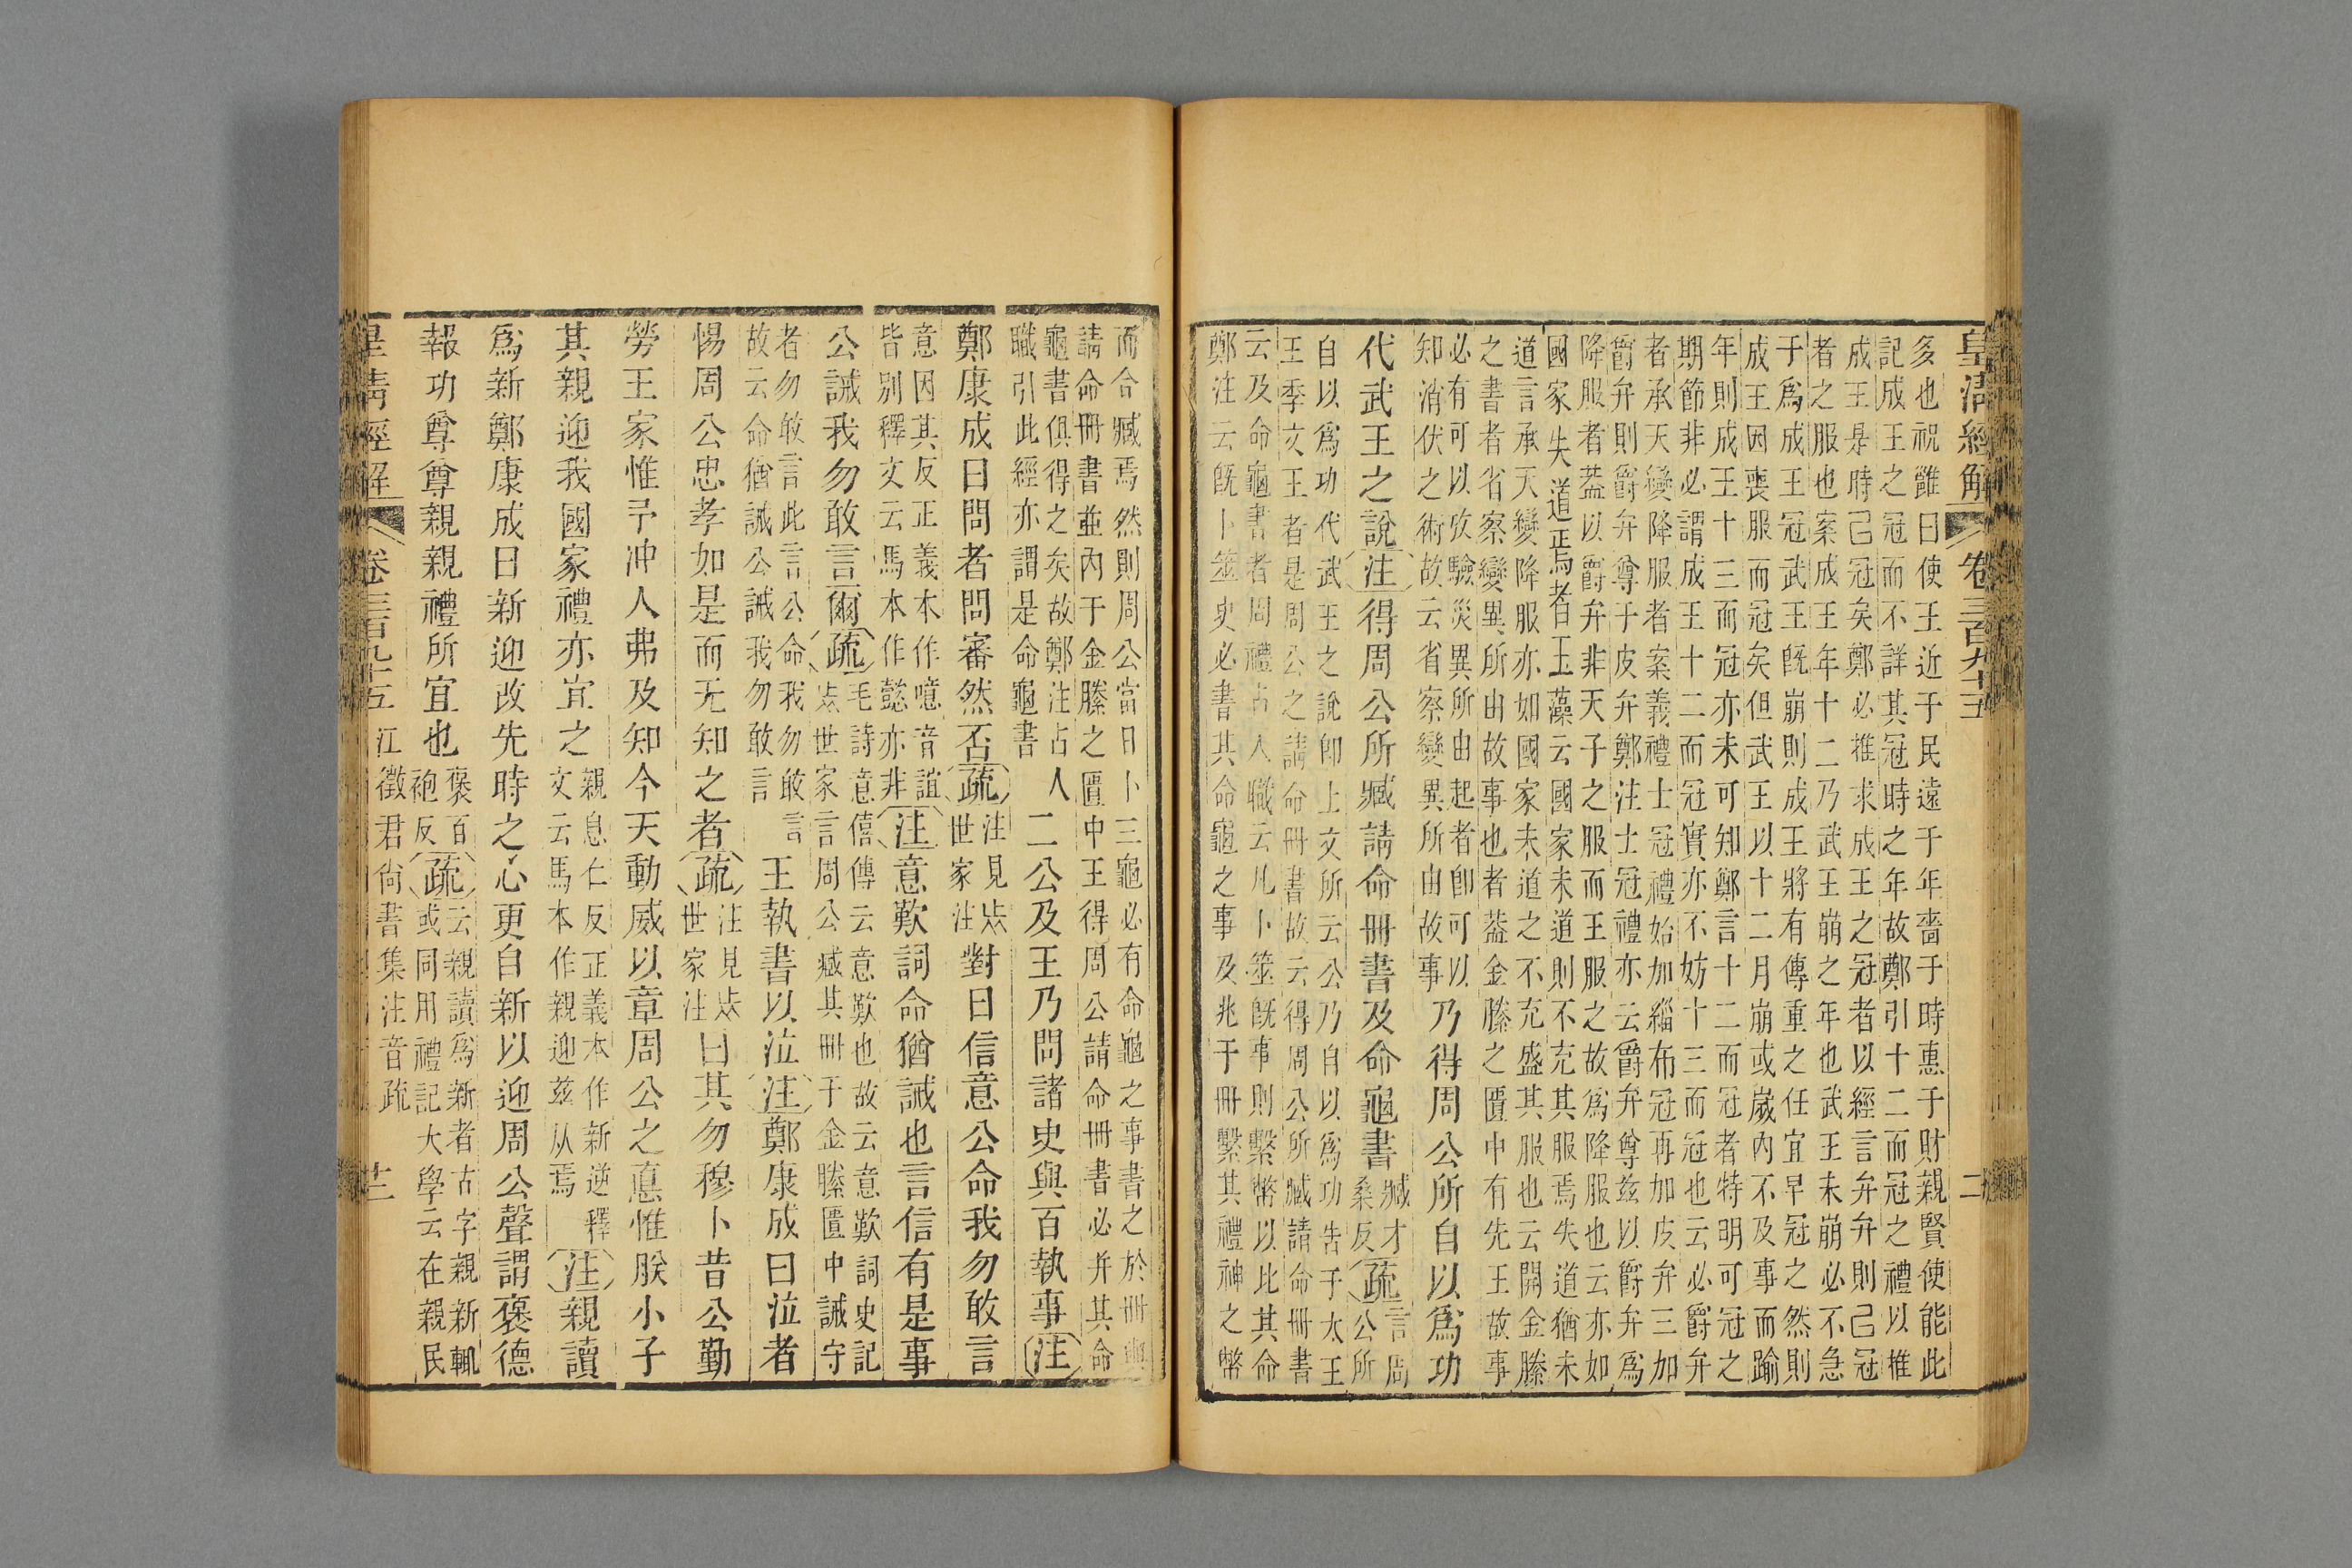 皇清經解 卷三百九十五 二
多也祝雝曰使王近于民遠于年嗇于時惠于財親賢使能此
記成王之冠而不詳其冠時之年故鄭引十二而冠之禮以推
成王是時已冠矣鄭必推求成王之冠者以經言弁弁則已冠
者之服也案成王年十二乃武王崩之年也武王未崩必不急
于爲成王冠武王旣崩則成王將有傳重之任宜早冠之然則
成王因喪服而冠矣但武王以十二月崩或崴內不及事而踰
年則成王十三而冠亦未可知鄭言十二而冠者特明可冠之
期節非必謂成王十二而冠實亦不妨十三而冠也云必爵弁
者承天變降服者案義禮士冠禮始加緇布冠再加皮弁三加
爵弁則爵弁尊于皮弁鄭注士冠禮亦云爵弁尊兹以爵弁爲
降服者葢以爵弁非天子之服而王服之故爲降服也云亦如
國家失道焉者玉藻云國家未道則不充其服焉失道猶未
道言承天變降服亦如國家未道之不充盛其服也云開金縢
之書者省察變異所由故事也者葢金縢之匱中有先王故事
必有可以攷驗災異所由起者卽可以
知消伏之術故云省察變異所由故事
乃得周公所自以爲功
代武王之說注得周公所臧請命冊書及命龜書
臧才
桑反
疏
言周
公所
自以爲功代武王之說卽上文所云公乃自以爲功告于太王
王季文王者是周公之請命冊書故云得周公所臧請命冊書
云及命龜書者周禮占人職云凡卜筮旣事則繫幣以比其命
鄭注云旣卜筮史必書其命龜之事及兆于冊繫其禮神之幣
而合臧焉然則周公當日卜三龜必有命龜之事書之於冊與
請命冊書並內于金縢之匱中王得周公請命冊書必并其命
龜書俱得之矣故鄭注占人
職引此經亦謂是命龜書
二公及王乃問諸史與百執事注
鄭康成曰問者問審然否疏
注見㳒
世家注
對曰信意公命我勿敢言
意因其反正義本作噫音誼
皆別釋文云馬本作懿亦非
注意歎詞命猶誡也言信有是事
公誡我勿敢言爾疏
毛詩意僖傳云意歎也故云意歎詞史記
㳒世家言周公臧其冊于金縢匱中誡守
者勿敢言此言公命我勿敢言
故云命猶誡公誡我勿敢言
王執書以泣注鄭康成曰泣者
惕周公忠孝如是而无知之者疏
注見㳒
世家注
曰其勿穆卜昔公勤
勞王家惟予冲人弗及知今天動威以章周公之悳惟朕小子
其親迎我國家禮亦宜之
親息仁反正義本作新逆釋
文云馬本作親迎兹从焉
注親讀
爲新鄭康成曰新迎改先時之心更自新以迎周公聲謂褒德
報功尊尊親親禮所宜也
褒百
袍反
疏
云親讀爲新者古字親新輒
或同用禮記大學云在親民
皇清經解 卷三百九十五 江徵君尙書集注音疏 廿二